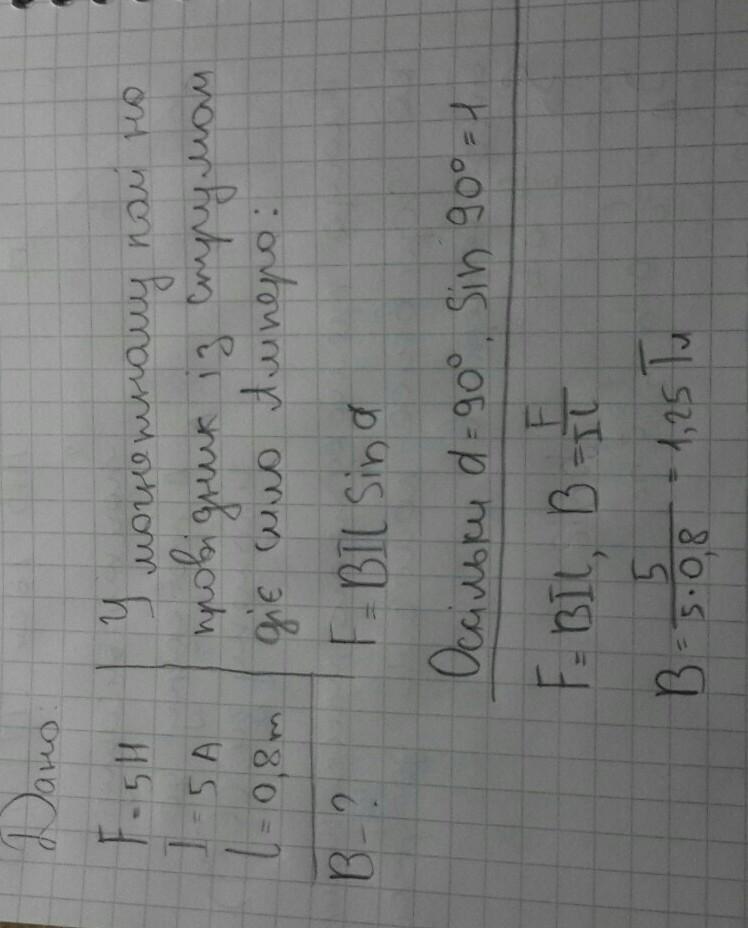 Дано:
F = 5Н
I = 5А
l = 0,8m
B - ?
У магнетному полі на
провідник із струмом
діє сила Ампера:
F = BIl Sin α
Оскільки α = 90°, Sin 90° = 1
F = BIl, B = F/Il
B = 5/5·0,8 = 1,25 Тл